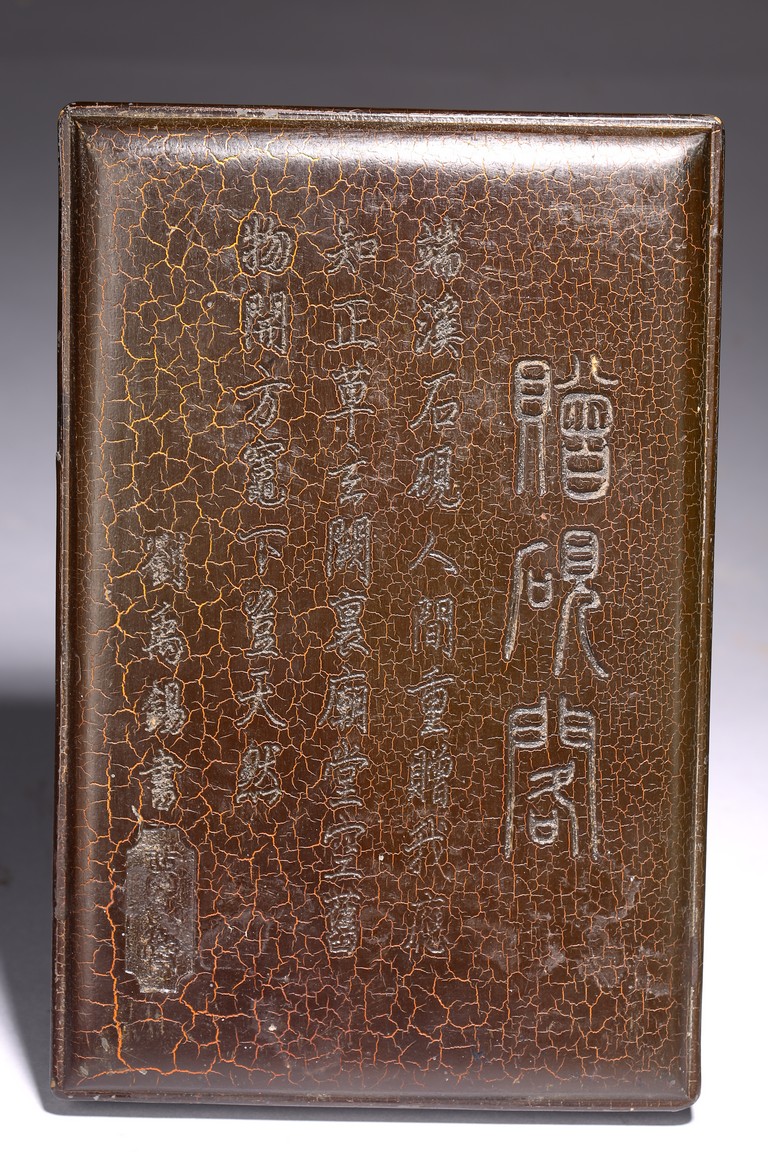 贈硯閣
端溪石硯人間重贈我應
知正草玄闕裏廟堂空舊
物開方竈下豈天然
劉禹錫書